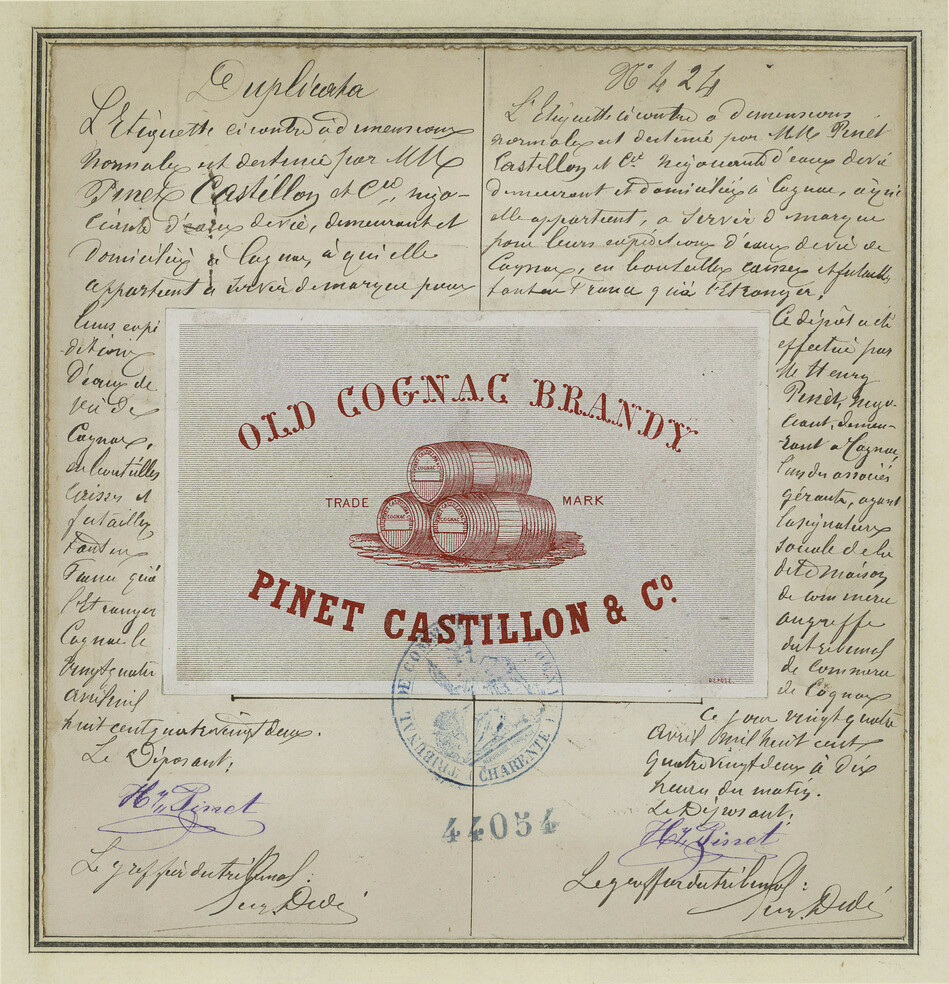 Duplicata
L'Etiquette ci contre à dimensions
normales est destinée par MM
Pinet Castillon et Cie, négo-
ciants d'eaux de vie, demeurant et
domiciliés à Cognac, à qui elle
appartient à servir de marque pour
leurs expé
ditions
d'eaux de
vie de
Cognac,
en bouteilles
caisses et
futailles
tant en
France qu'à
l'Etranger
Cognac le
vingt quatre
avril mil
huit cent quatre vingt deux.
Le Déposant,
Hy Pinet
Le greffier du tribunal:
N° 424
L'Etiquette ci contre a dimensions
normales est destinée par MM Pinet
Castillon et Cie négociants d'eaux de vie
demeurant et domiciliés à Cognac, à qui
elle appartient, a servir de marque
pour leurs expéditions d'eaux de vie de
Cognac, en bouteilles caisses et futailles
tant en France qu'à l'Etranger.
Ce dépôt a été
effectué par
Mr Henry
Pinet, négo-
ciant, demeu-
rant a Cognac
l'un des associés
gérants, ayant
la signature
sociale de la
dite maison
de commerce
au greffe
du tribunal
de commerce
de Cognac
Ce jour vingt quatre
avril mil huit cent
quatre vingt deux à dix
heures du matin.
Le Déposant,
Hy Pinet
Le greffier du tribunal:
OLD COGNAC BRANDY
TRADE MARK
COGNAC
COGNAC
COGNAC
PINET CASTILLON & Co.
DÉPOSÉ.
TRIBUNAL DE COMMERCE
CHARENTE
44054